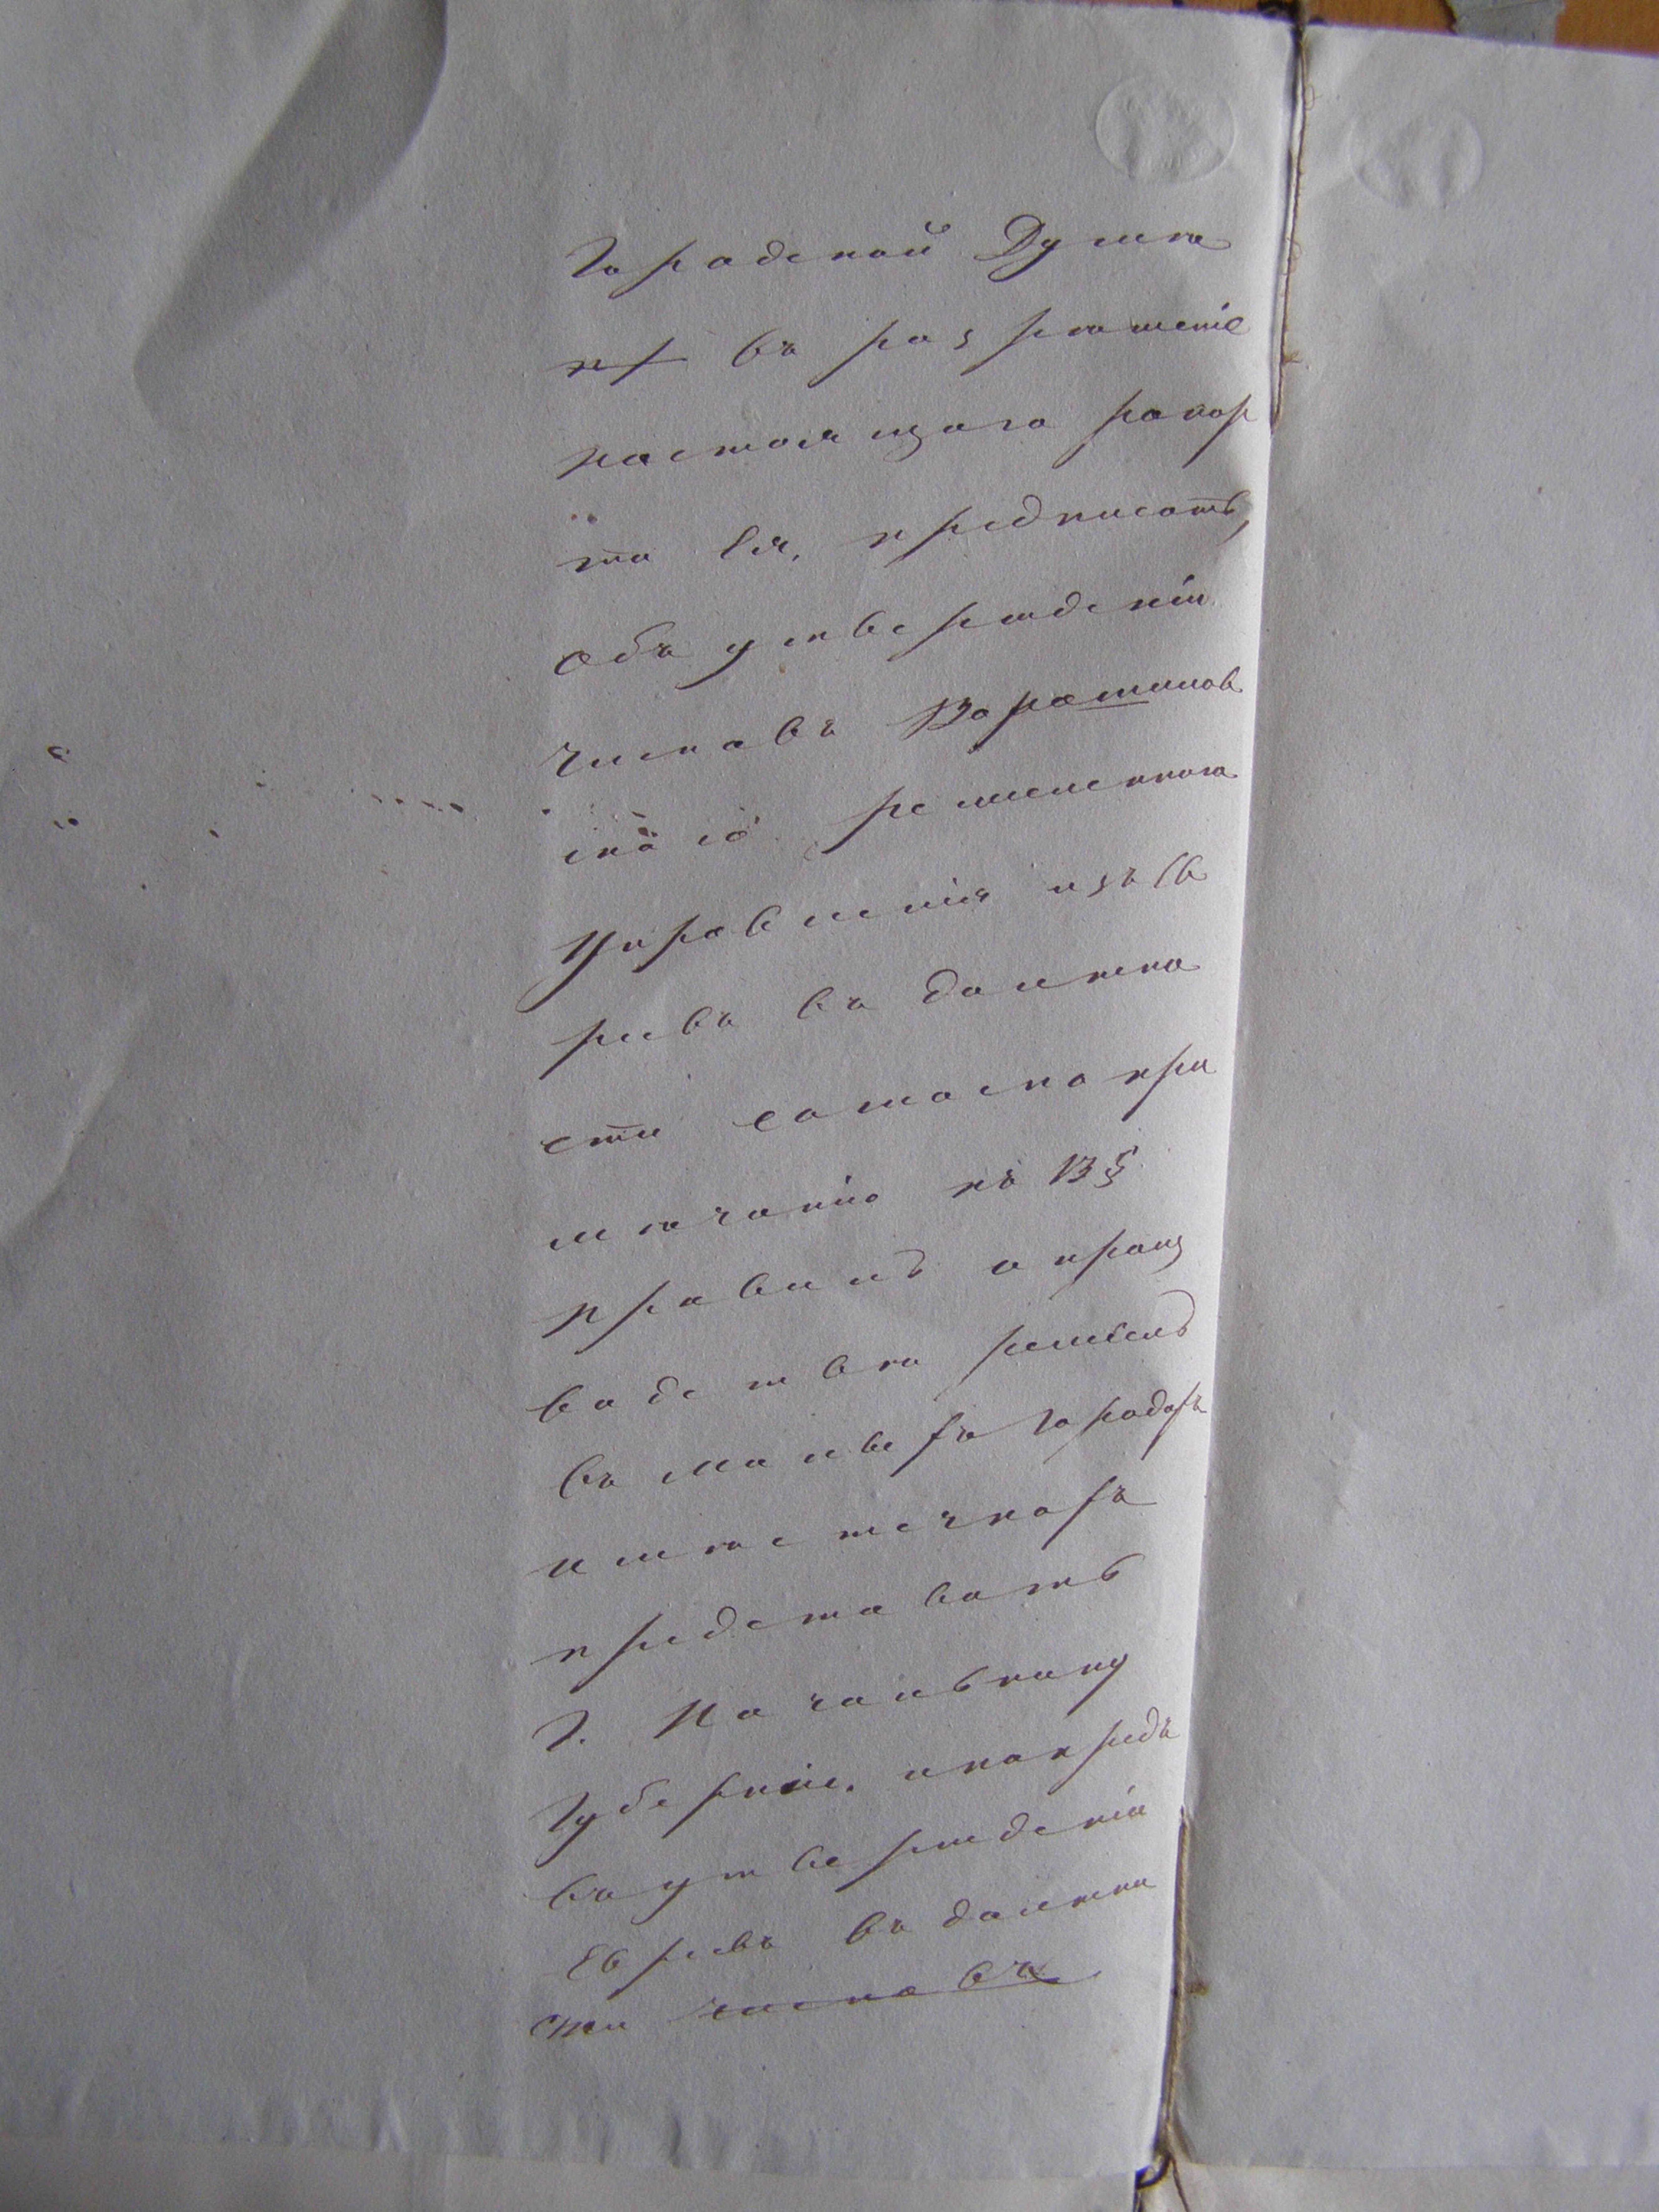 Городской Думы
въ разрѣшеніе
настоящаго рапор
та ея, предписать,
объ утвержденіи
членовъ
скаго ремесленнаго
Управленія изъ Ев
реевъ въ должно
сти согласно при
мѣчанію къ 13 §
правилъ о произ
водствѣ ремеслъ
въ малыхъ городахъ
и мѣстечкахъ
представить
Г. Начальнику
Губерніи.
въ утвержденіи
Евреевъ въ должно
сти членовъ